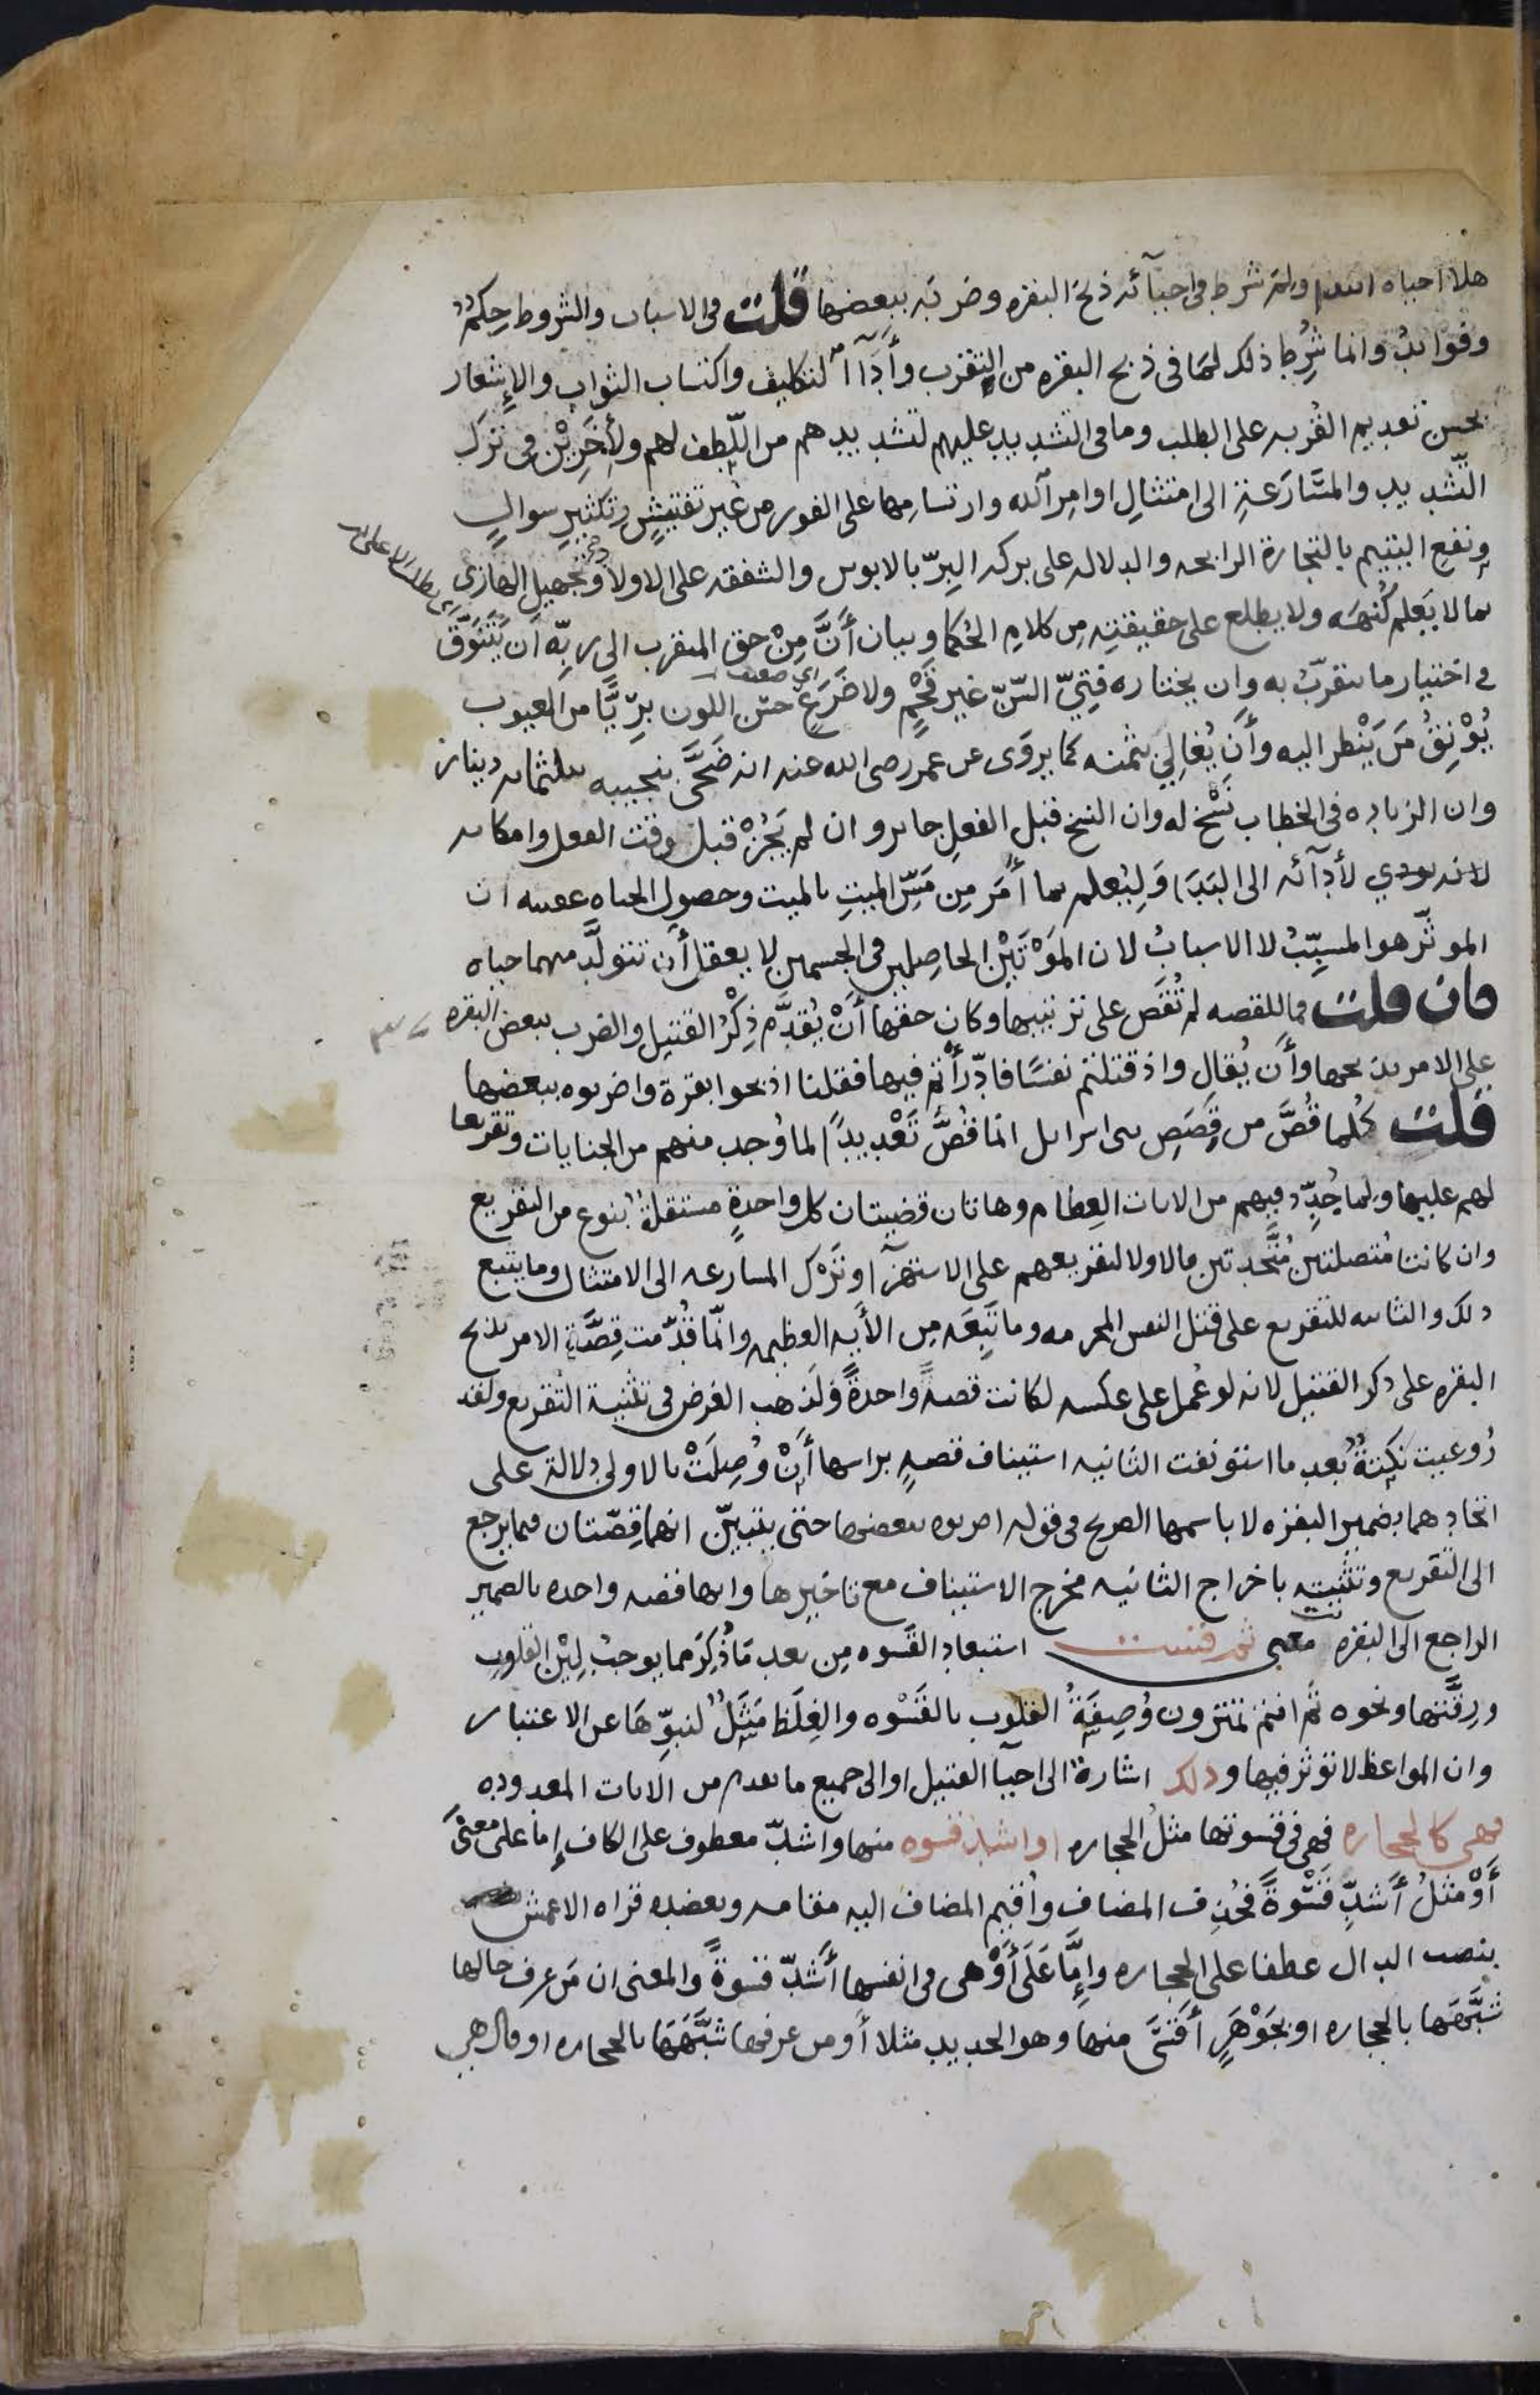 هلا احياه ابتدا ولم شرط في احيآئه ذبح البقره وضربه ببعضها قلت في الاسباب والشروط حِكمٌ
وفوائدُ وانما شُرِط ذلك لما في ذبح البقره من التقرب وأدآ التكاليف واكتساب الثواب والإشعار
بحسن تقديم القُربه على الطلب وما في التشديد عليهم لتشديدهم من اللّطف لهم ولأخَرِيْن في ترك
التّشديد والمسَارَعةِ الى امتثالِ اوامِر الله وارتسامِها على الفور من غير تفتيشٍ وتكثيرِ سوالٍ
ونفعِ اليتيم بالتجارة الرابحه والدلاله على بركه البِرّ بالابوين والشفقه على الاولاد وتجهيلِ الهازي
بما لا يَعلم كُنهَه ولا يطلع على حقيقتِه مِن كلامِ الحُكما وبيان أنَّ مِنْ حق المتقرب الى ربّه ان يَتَنَوَّق
في اختيار ما يتقرّبُ به وان يختاره فتِيَّ السّنّ غير قَحْمٍ ولا ضَرَعٍ حسَن اللون برِيًّا من العيوب
اي ضعيف
يُوْنِقُ مَن يَنْظر اليه وأَن يُغالِيَ بثمنه كما يروَى عن عمر رضي الله عنه انه ضَحَّى بنجيبه بثلثمائه دينار
وان الزياده في الخطاب نَسْخ له وان النسخ قبل الفعلِ جايز وان لم يَجُزْ قبل وقت الفعل وامكانه
لانه يودي لأدآئه الى البَدَا وَلِيُعلم بما أُمَر مِن مَسِّ الميتِ بالميت وحصول الحياه عقيبه ان
الموثّر هو المسبِّبُ لا الاسبابُ لان المَوْتَيْن الحاصِلَين في الجسمين لا يعقل أن تتولَّد منهما حياه
فان قلت فما للقصه لم تُقَص على ترتيبها وكان حقها أَنْ يُقدَّم ذِكْرُ القتيل والضرب ببعض البقره
على الامر بذبحها وأَن يُقال واذ قتلتم نفسًا فادّرأْتُم فيها فقلنا اذبحوا بقرة واضربوه ببعضها
قلت كُلما قُصَّ من قَصَصِ بني اسرايل انما قُصَّ تَعْديدًا لما وُجد منهم من الجنايات وتقريعا
لهم عليها ولما جُدِّد فيهم من الايات العِظام وهاتان قضيتان كل واحدةٍ مستقلةٌ بنوع من التقريع
وان كانتا مُتصلتين مُتَّحدتين فالاولا لتقريعهم على الاستهزآ وتَرْك المسارعه الى الامتثال وما يتبع
ذلك والثانيه للتقريع على قتل النفس المحرمه وما تَبِعَه مِن الأيه العظيمه وانّما قُدّمت قِصَّة الامر بذبح
البقره على ذكر القتيل لانه لو عُمل على عكسه لكانت قصةً واحدةً ولَذهب الغرض في تثنية التقريع ولقد
رُوعيت نكتةٌ بُعد ما استونفت الثانيه استيناف قصهٍ براسها أَنْ وُصِلَتْ بالاولى دلالة على
اتحادهما بضمير البقره لا باسمها الصريح في قوله اضربوه ببعضها حتى يتبيّن انهما قِصّتان فيما يرجع
الى التقريع وتثنيته باخراج الثانيه مخرج الاستيناف مع تاخيرها وانها قصه واحده بالضمير
الراجع الى البقره معنى ثم قست استبعاد القَسوه مِن بعد مَا ذُكِرَ مما يوجبُ لِيْن القلوب
ورِقَّتها ونحوه ثُم انتم تمترون وُصِفَةُ القلوب بالقَسْوه والغِلَظ مَثَلٌ لنبوِّهَا عن الاعتبار
وان المواعظ لا توثر فيها وذلك اشارةٌ الى احيآ القتيل او الى جميع ما تقدم من الايات المعدوده
فهي كالحجاره فهي في قسوتها مثلُ الحجاره او اشد قسوه منها واشدّ معطوف على الكاف إما على معنى
أَوْ مثلُ أَشدِّ قَسْوةً فحُذِف المضاف واُقيم المضاف اليه مقامه ويعضده قراه الاعمش
بنصب الدال عطفا على الحجاره وإِمَّا عَلَى أَوْ هي في انفسها أَشدّ قسوةً والمعنى ان مَن عرف حالها
شبَّهَها بالحجاره او بجَوْهَرٍ أَقسَى منها وهو الحديد مثلا أو من عرفها شبَّهَهَا بالحجاره او قال هي